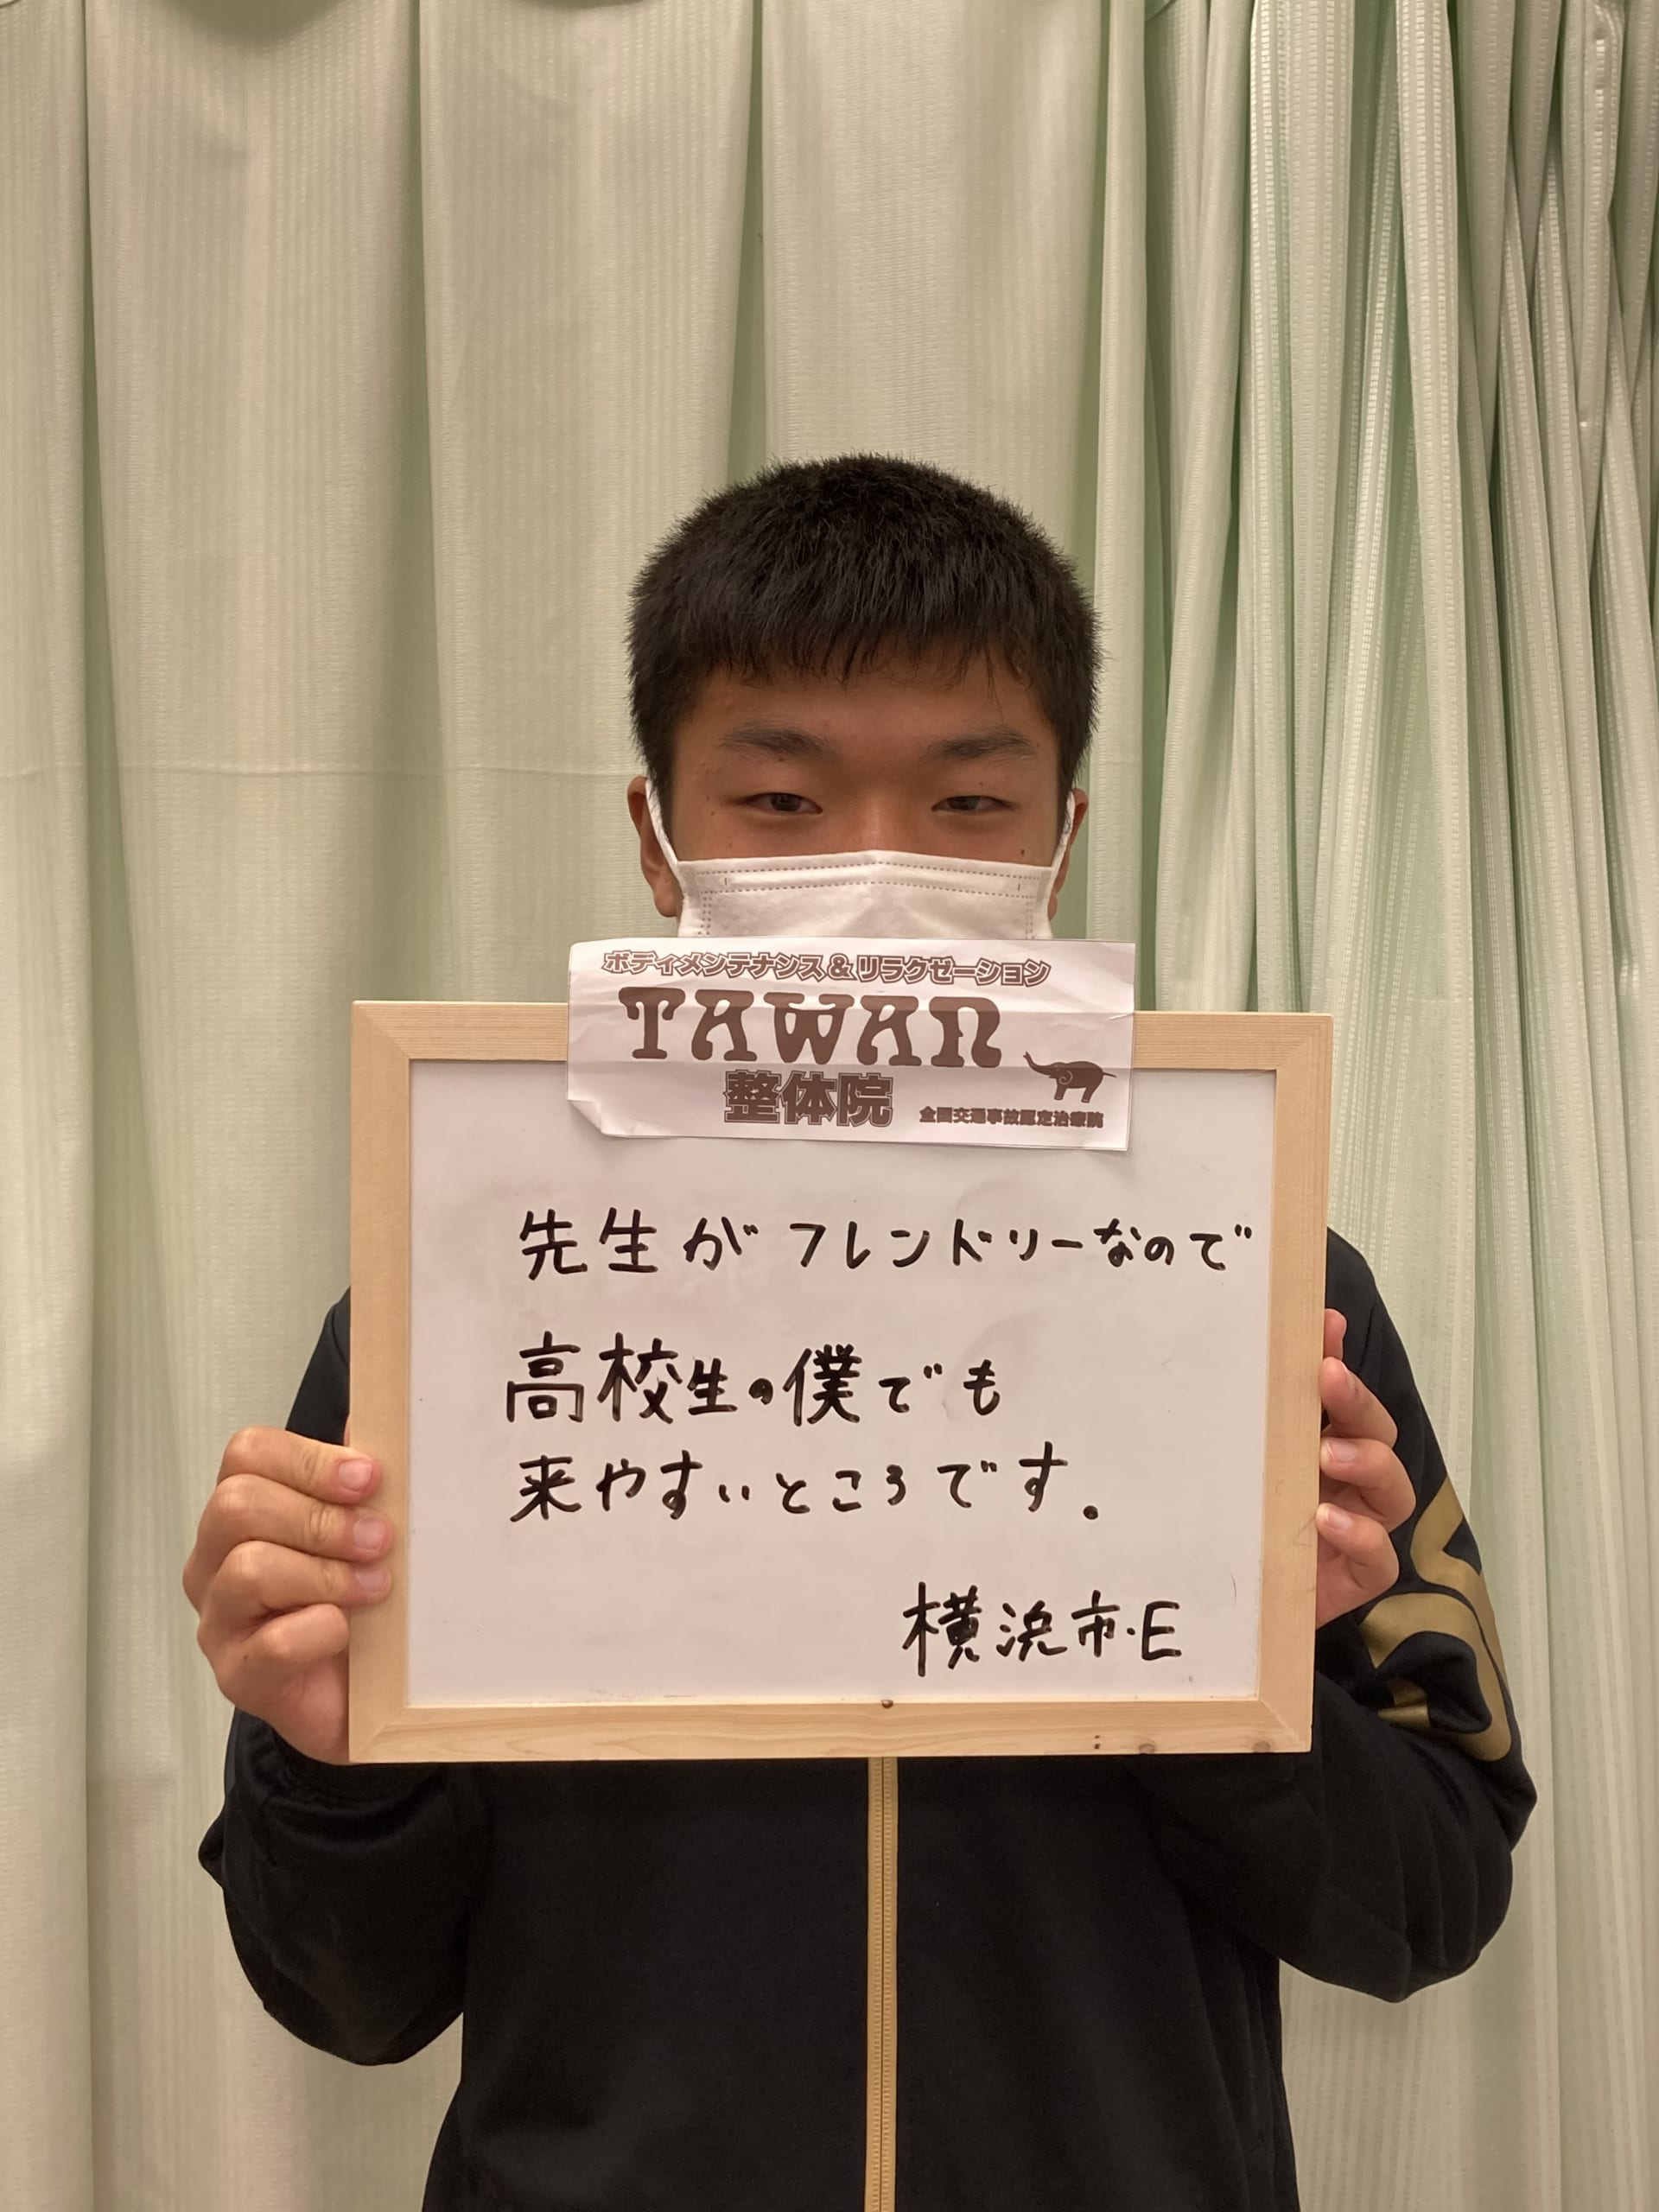 ボディメンテナンス&リラクゼーション
TAWAN
整体院
全国交通事故認定治療院
先生がフレンドリーなので
高校生の僕でも
来やすいところです。
横浜市・E